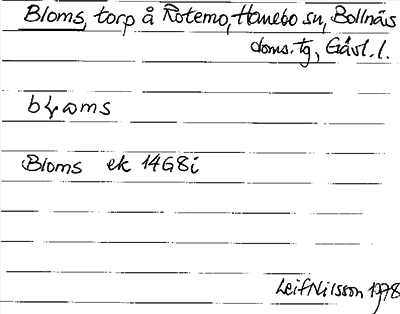 Bloms, torp å Rotemo, Hanebo sn, Bollnäs
doms.tg, Gävl. l.
Bloms ek 14G8i
Leif Nilsson 1978